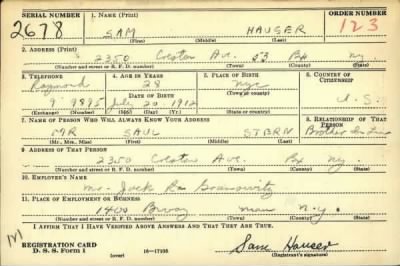 SERIAL NUMBER 1. NAME (Print) ORDER NUMBER
2678 SAM HAUSER 123
(First) (Middle) (Last)
2. ADDRESS (Print)
2350 Creston Av. 53 Bx Ny.
(Number and street or R. F. D. number) (Town) (County) (State)
3. TELEPHONE 4. AGE IN YEARS 5. PLACE OF BIRTH 6. COUNTRY OF CITIZENSHIP
Raymond 28 nyc
DATE OF BIRTH (Town or county)
9 9895 July 20 1912 U.S.
(Exchange) (Number) (Mo.) (Day) (Yr.) (State or country)
7. NAME OF PERSON WHO WILL ALWAYS KNOW YOUR ADDRESS 8. RELATIONSHIP OF THAT PERSON
MR SAUL STERN Brother in Law
(Mr., Mrs., Miss) (First) (Middle) (Last)
9. ADDRESS OF THAT PERSON
2350 Creston Ave. Bx Ny.
(Number and street or R. F. D. number) (Town) (County) (State)
10. EMPLOYER'S NAME
Mr. Jack
11. PLACE OF EMPLOYMENT OR BUSINESS
1400 Bway man n.y.
(Number and street or R. F. D. number) (Town) (County) (State)
I AFFIRM THAT I HAVE VERIFIED ABOVE ANSWERS AND THAT THEY ARE TRUE.
REGISTRATION CARD
D. S. S. Form 1 16—17105 Sam Hauser
(over) (Registrant's signature)